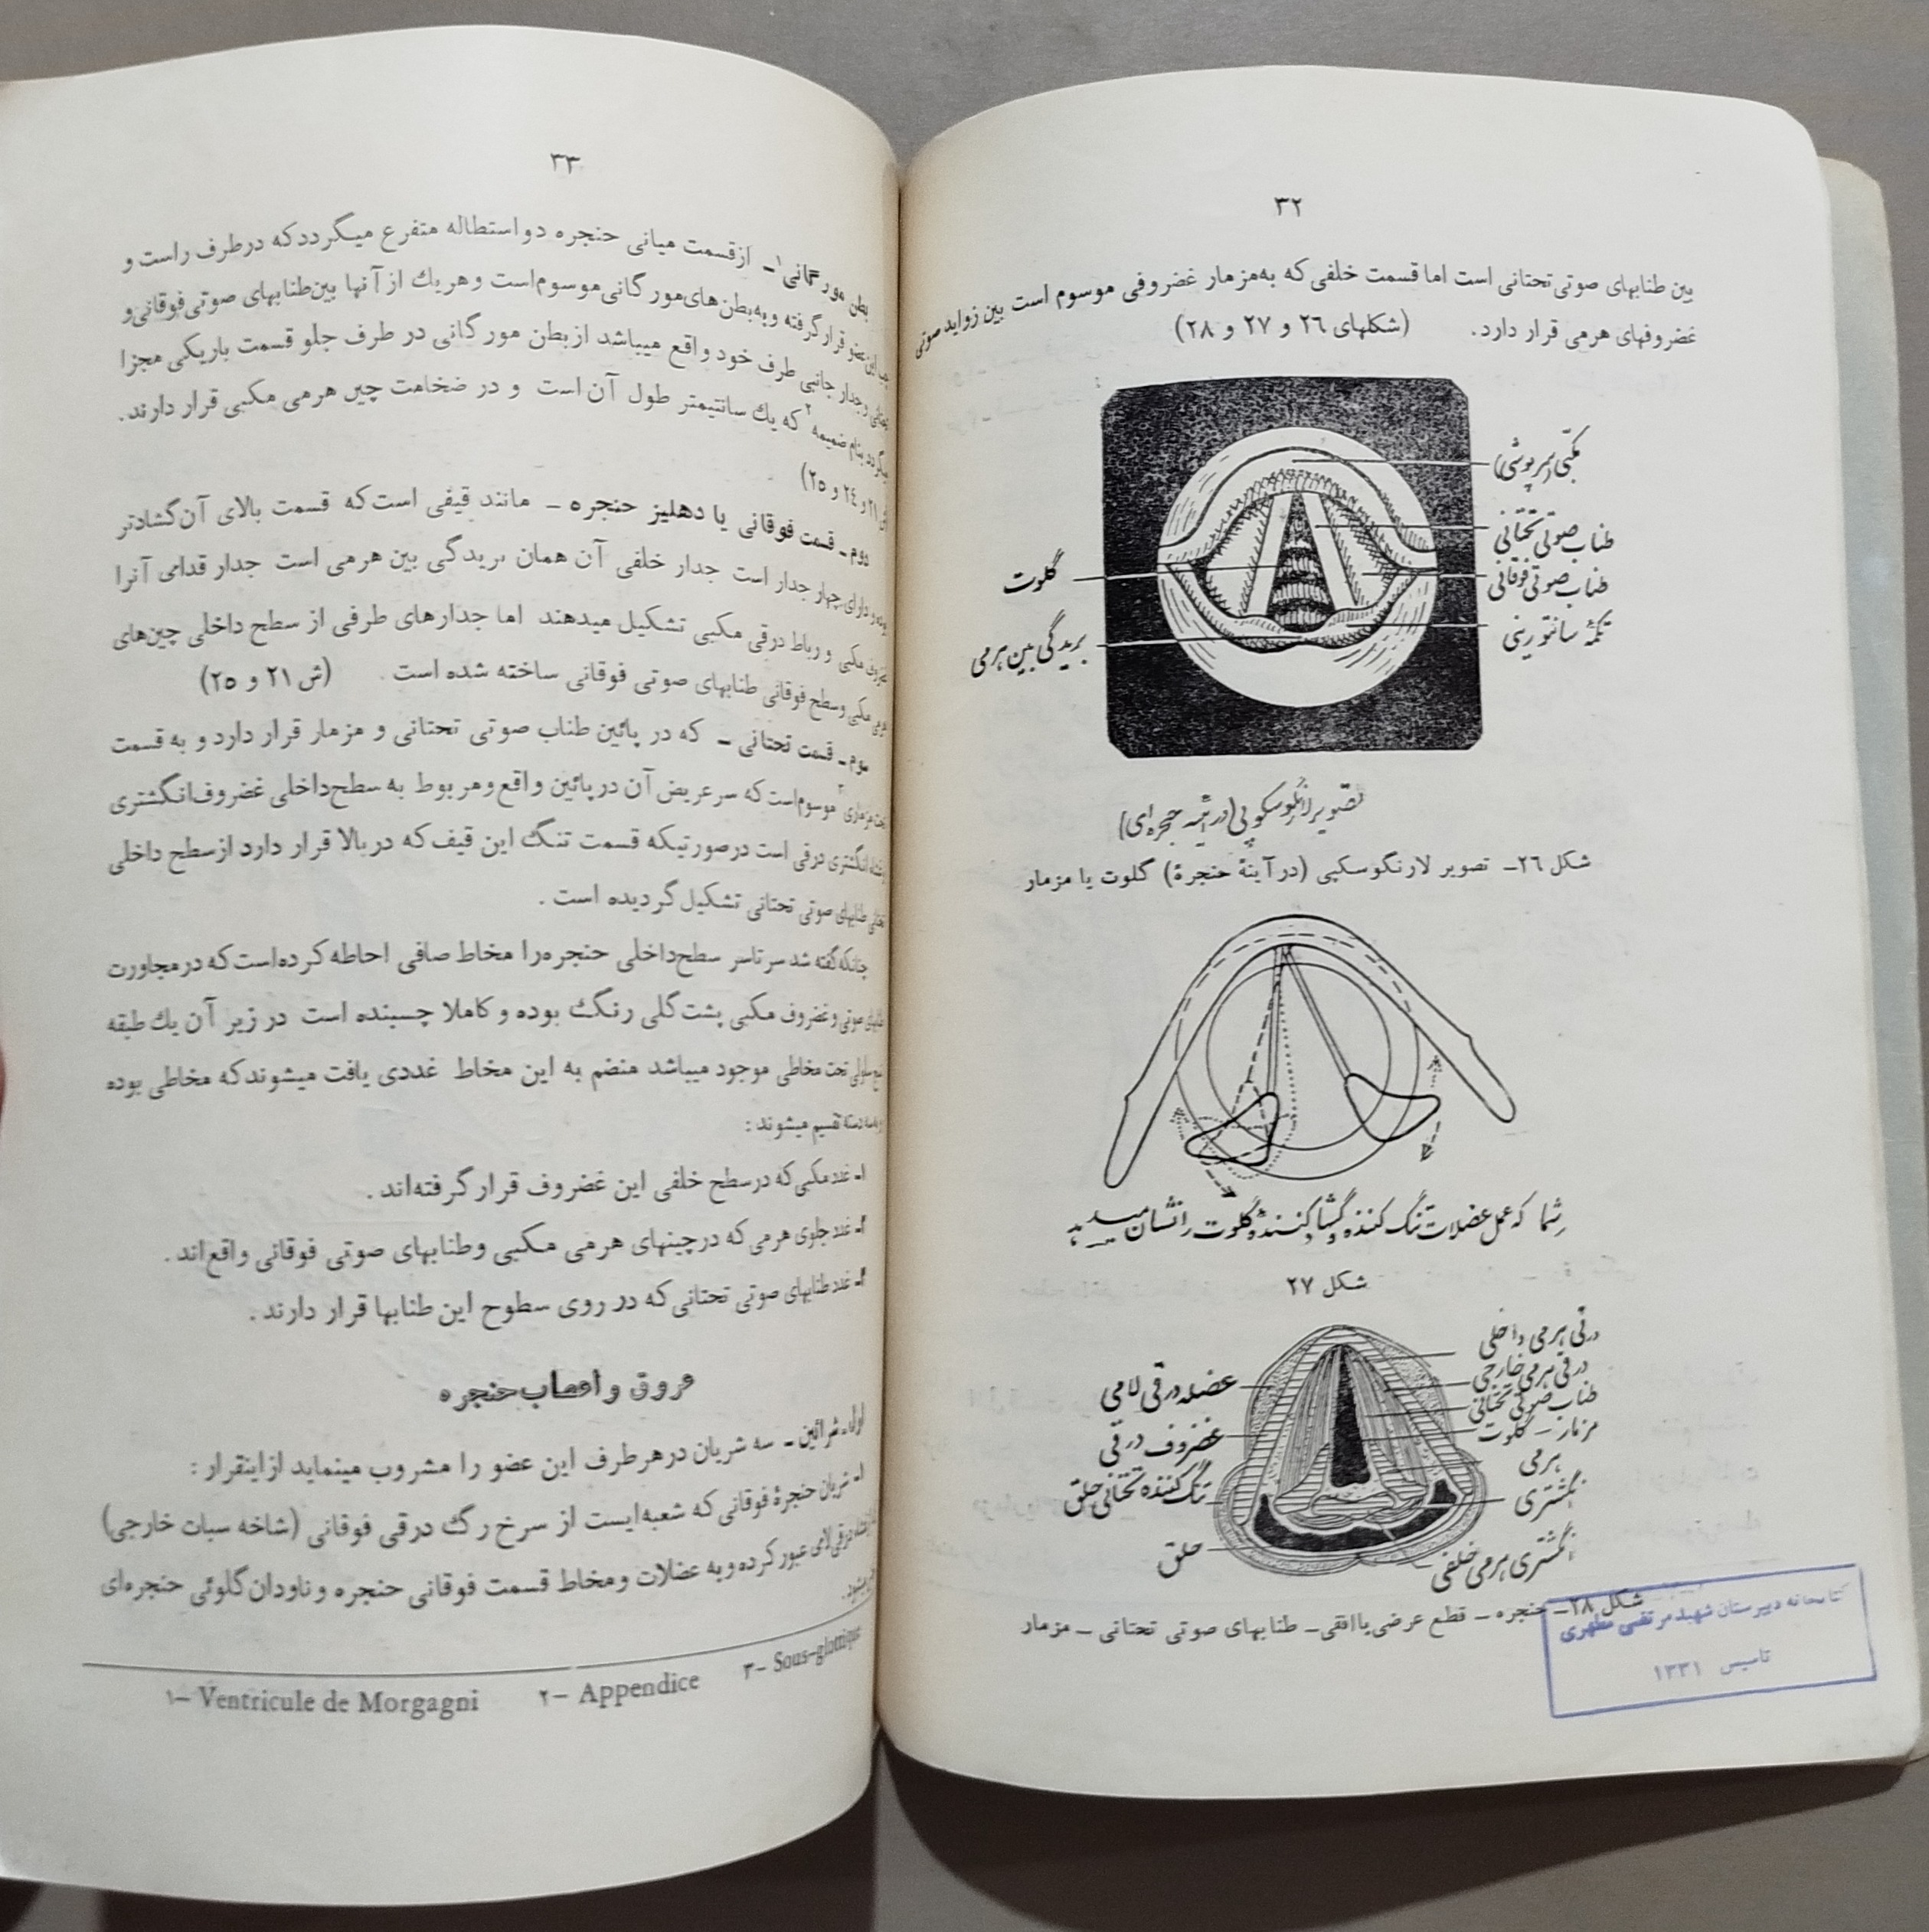 ۳۲
بین طنابهای صوتی تحتانی است اما قسمت خلفی که به‌مزمار غضروفی موسوم است بین زواید صوتی
غضروفهای هرمی قرار دارد. (شکلهای ۲۶ و ۲۷ و ۲۸)
مکبی (سرپوشی)
طناب صوتی تحتانی
طناب صوتی فوقانی
تکمهٔ سانتورینی
گلوت
بریدگی بین هرمی
تصویر لارنگوسکوپی (در آئینه حنجره‌ای)
شکل ۲۶- تصویر لارنگوسکپی (در آینهٔ حنجرهٔ) گلوت یا مزمار
شما که عمل عضلات تنگ کننده و گشاد کنندهٔ گلوت را نشان میدهد
شکل ۲۷
درقی هرمی داخلی
درقی هرمی خارجی
طناب صوتی تحتانی
مزمار - گلوت
هرمی
انگشتری
انگشتری هرمی خلفی
عضله درقی لامی
غضروف درقی
تنگ کننده تحتانی حلق
حلق
شکل ۲۸- حنجره - قطع عرضی یا افقی- طنابهای صوتی تحتانی - مزمار
کتابخانه دبیرستان شهید مرتضی مطهری
تاسیس ۱۳۳۱
۳۳
بطن مورگانی۱- ازقسمت میانی حنجره دواستطاله متفرع میگرددکه درطرف راست و
این عضو قرارگرفته و به بطن‌های‌مورگانی موسوم‌است وهریك از آنها بین‌طنابهای صوتی‌فوقانی‌و
وجدار جانبی طرف خود واقع میباشد ازبطن مورگانی در طرف جلو قسمت باریکی مجزا
میگردد بنام ضمیمه۲ که یك سانتیمتر طول آن‌است و در ضخامت چین هرمی مکبی قرار دارند.
۲۱ و ۲٤ و ۲۵)
دوم- قسمت فوقانی یا دهلیز حنجره - مانند قیفی است‌که قسمت بالای آن‌گشادتر
دارای چهار جدار است جدار خلفی آن همان بریدگی بین هرمی است جدار قدامی آنرا
مکبی و رباط درقی مکبی تشکیل میدهند اما جدارهای طرفی از سطح داخلی چین‌های
مکبی وسطح فوقانی طنابهای صوتی فوقانی ساخته شده است . (ش ۲۱ و ۲۵)
سوم- قسمت تحتانی - که در پائین طناب صوتی تحتانی و مزمار قرار دارد و به قسمت
موسوم‌است که سرعریض آن درپائین واقع ومربوط به سطح‌داخلی غضروف‌انگشتری
انگشتری درقی است درصورتیکه قسمت تنگ این قیف‌که دربالا قرار دارد ازسطح داخلی
طنابهای صوتی تحتانی تشکیل گردیده است .
چنانکه گفته شد سرتاسر سطح‌داخلی حنجره‌را مخاط صافی احاطه کرده‌است‌که درمجاورت
صوتی وغضروف مکبی پشت‌گلی رنگ بوده و کاملا چسبنده است در زیر آن یك طبقه
تحت مخاطی موجود میباشد منضم به این مخاط غددی یافت میشوندکه مخاطی بوده
دسته تقسیم میشوند :
۱- غدد مکبی که درسطح خلفی این غضروف قرارگرفته‌اند .
۲- غدد جلوی هرمی که درچینهای هرمی مکبی وطنابهای صوتی فوقانی واقع‌اند .
۳- غدد طنابهای صوتی تحتانی که در روی سطوح این طنابها قرار دارند .
عروق و اعصاب حنجره
اول- شرائین - سه شریان درهرطرف این عضو را مشروب مینماید ازاینقرار :
۱- شریان حنجرهٔ فوقانی که شعبه‌ایست از سرخ رگ درقی فوقانی (شاخه سبات خارجی)
درقی لامی عبور کرده وبه عضلات ومخاط قسمت فوقانی حنجره و ناودان گلوئی حنجره‌ای
۱- Ventricule de Morgagni ۲- Appendice ۳- Sous-glottique